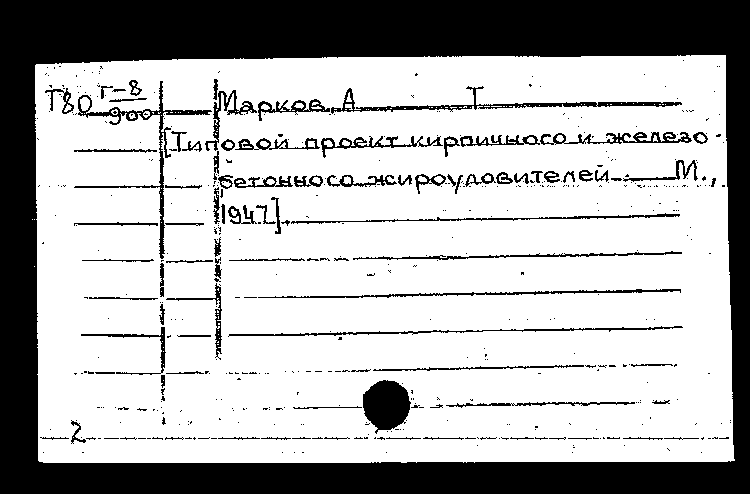 Т80 Т-8/900 Марков, А. Т
[Типовой проект кирпичного и железо-
бетонного жироуловителей. М.,
1947].
2